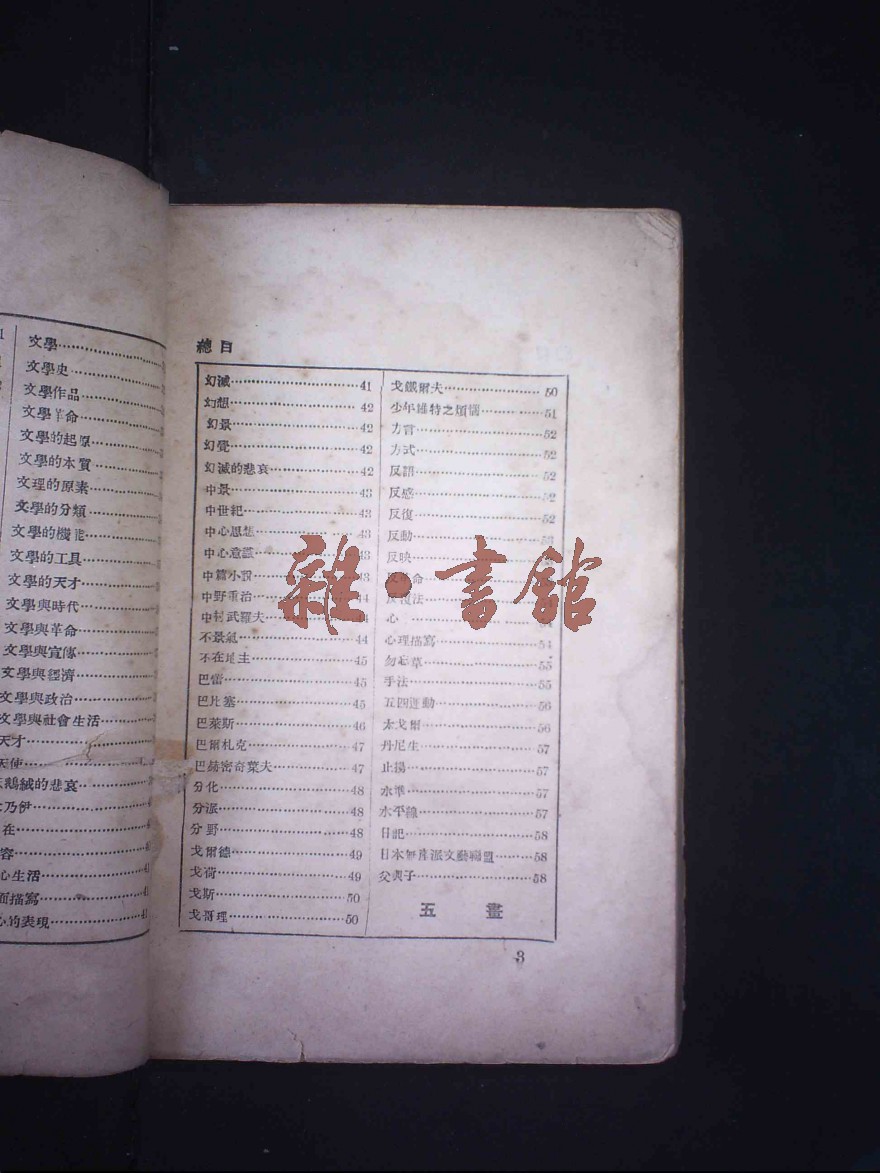 文學
文學史
文學作品
文學革命
文學的起原
文學的本質
文理的原素
文學的分類
文學的機能
文學的工具
文學的天才
文學與時代
文學與革命
文學與宣傳
文學與經濟
文學與政治
文學與社會生活
天才
天使
天鵝絨的悲哀
乃伊
在
容
心生活
面描寫
心的表現
總目
幻滅……41
幻想……42
幻景……42
幻覺……42
幻滅的悲哀……42
中景……43
中世紀……43
中心思想……43
中心意識……43
中篇小說……43
中野重治……44
中村武羅夫……44
不景氣……44
不在地主……45
巴雷……45
巴比塞……45
巴萊斯……46
巴爾札克……47
巴赫密奇葉夫……47
分化……48
分派……48
分野……48
戈爾德……49
戈荷……49
戈斯……50
戈哥理……50
戈鐵爾夫……50
少年維特之煩惱……51
方言……52
方式……52
反語……52
反感……52
反復……52
反動……53
反映
反革命
反覆法
心
心理描寫……54
勿忘草……55
手法……55
五四運動……56
太戈爾……56
丹尼生……57
止揚……57
水準……57
水平線……57
日記……58
日本無產派文藝聯盟……58
父與子……58
五 畫
3
雜·書館